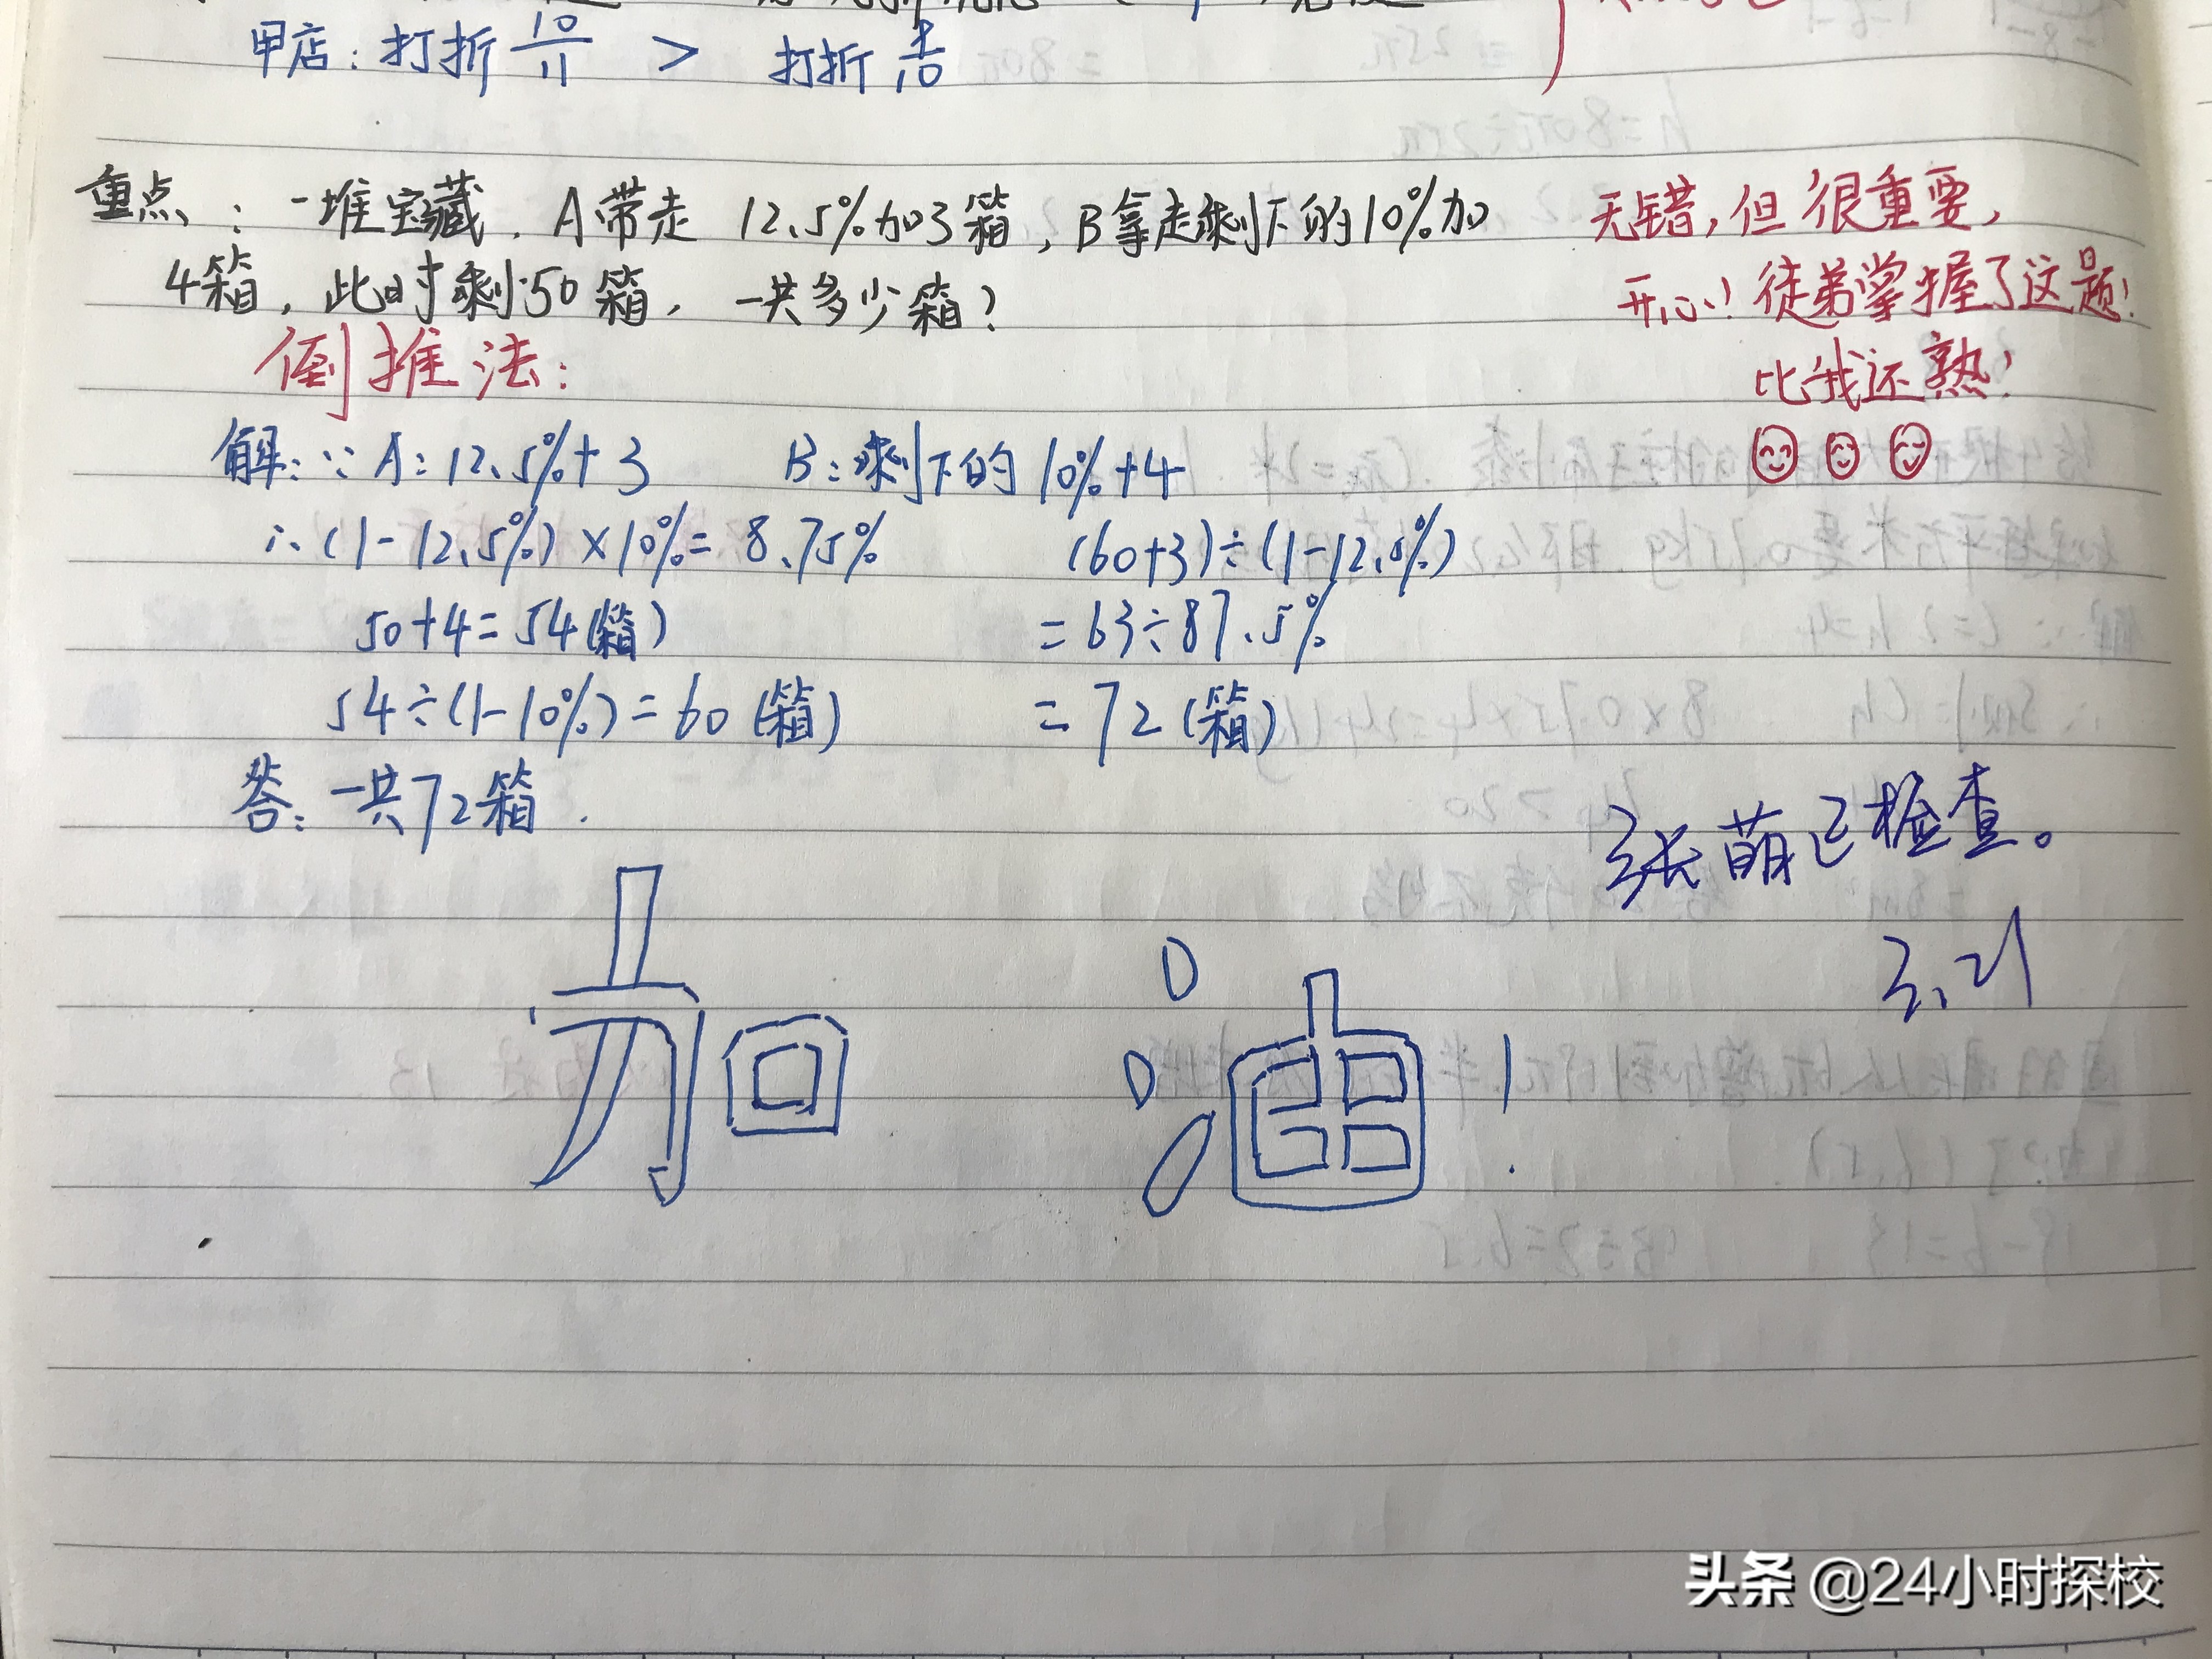 甲店：打折 10/11 > 打折 /10
重点：一堆宝藏．A带走 12.5%加3箱，B拿走剩下的10%加
4箱，此时剩50箱，一共多少箱？
无错，但很重要，
开心！徒弟掌握了这题！
比我还熟！
倒推法：
解：∵A：12.5%+3 B：剩下的10%+4
∴(1-12.5%)×10%=8.75% (60+3)÷(1-12.5%)
50+4=54(箱) =63÷87.5%
54÷(1-10%)=60(箱) =72(箱)
答：一共72箱．
张萌已检查。
3.21
加油！
头条 @24小时探校